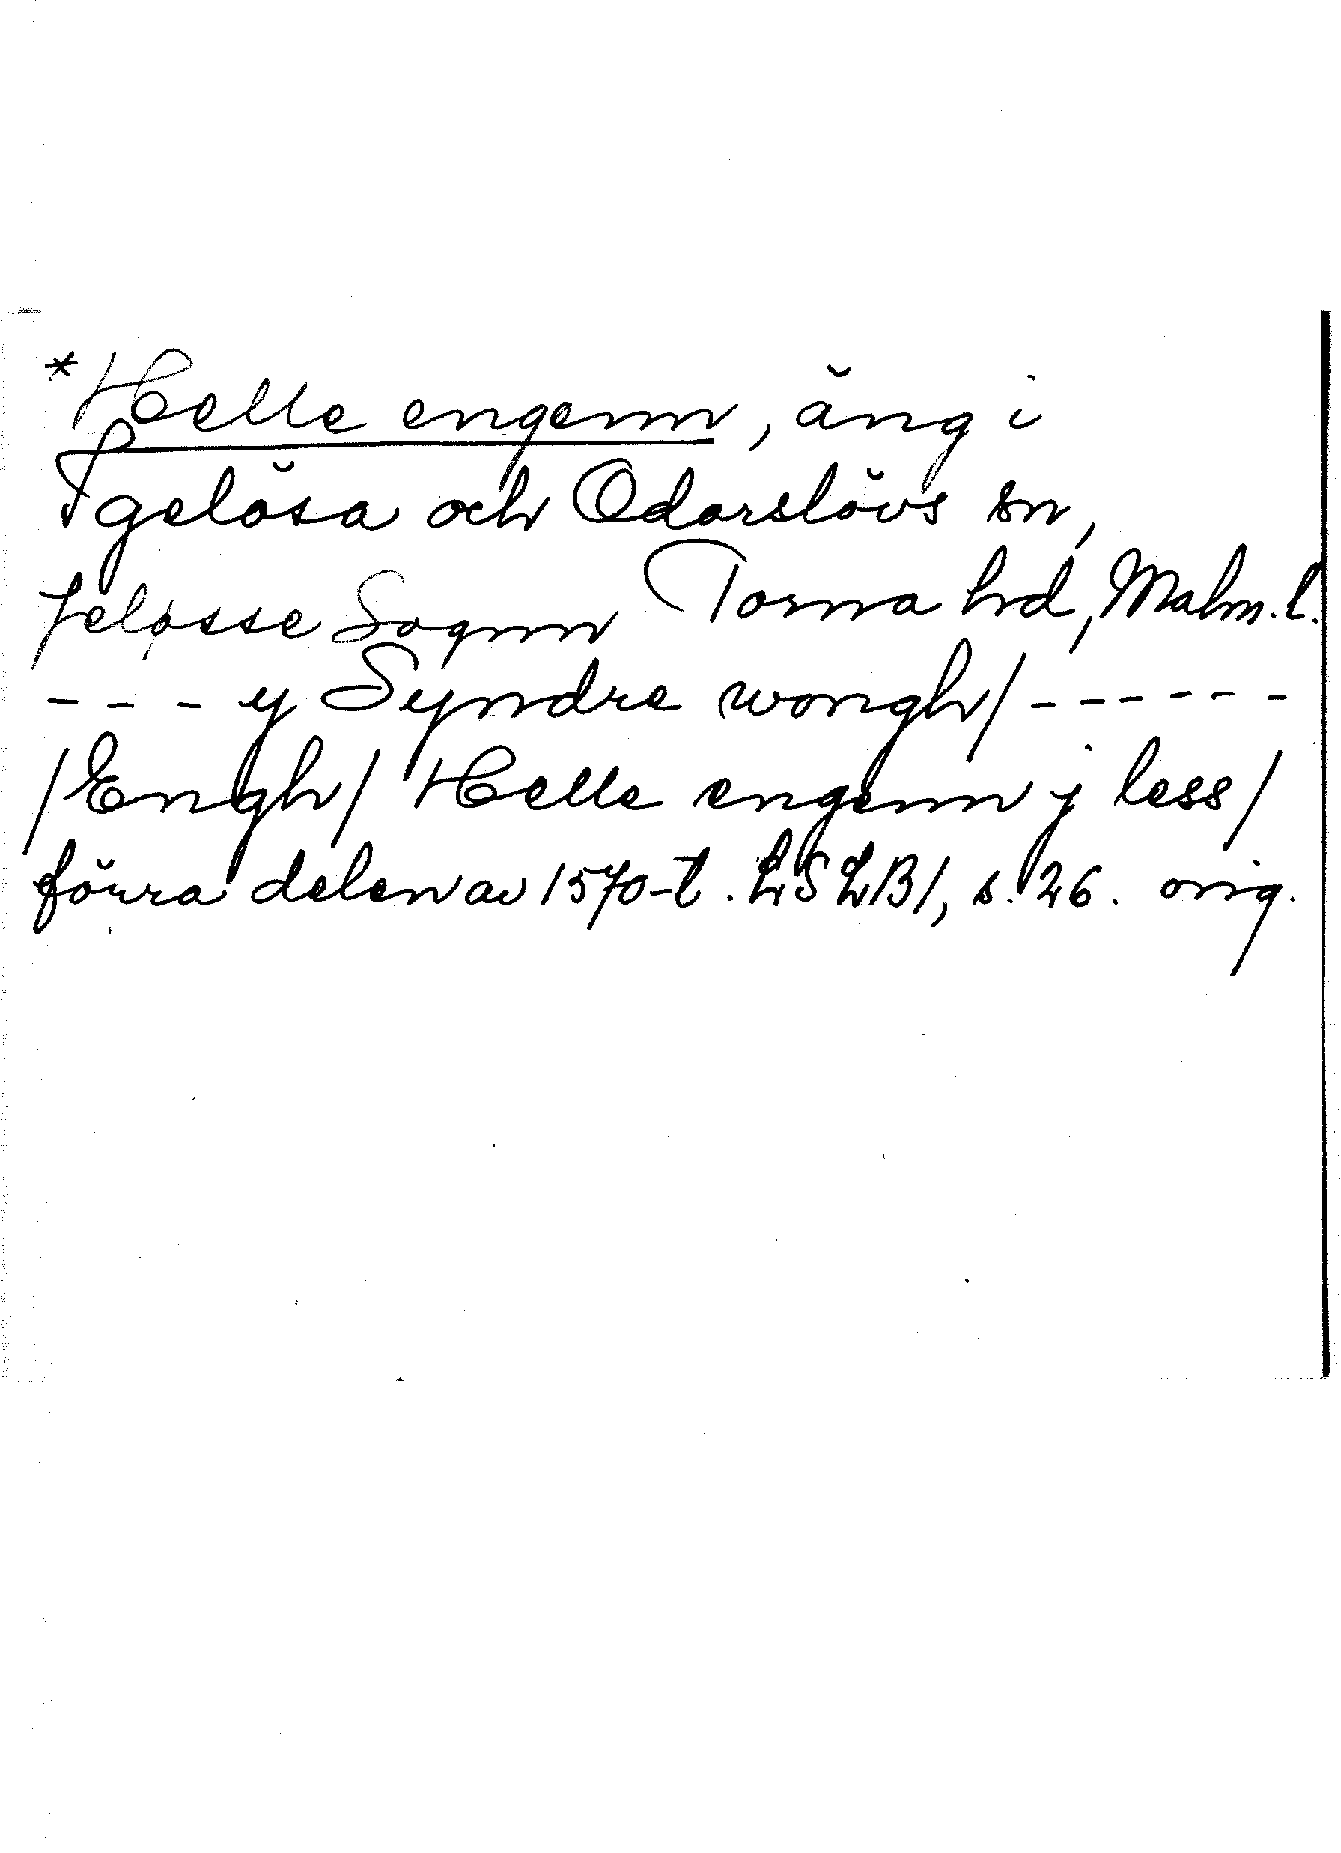 *Helle engenn, äng i
Igelösa och Odarslövs sn,
Jeløsse Sognn Torna hd, Malm. l.
--- y Syndre wongh/ ------
/Engh/ Helle engenn j less/
förra delen av 1570-t. LSLB1, s. 26. orig.